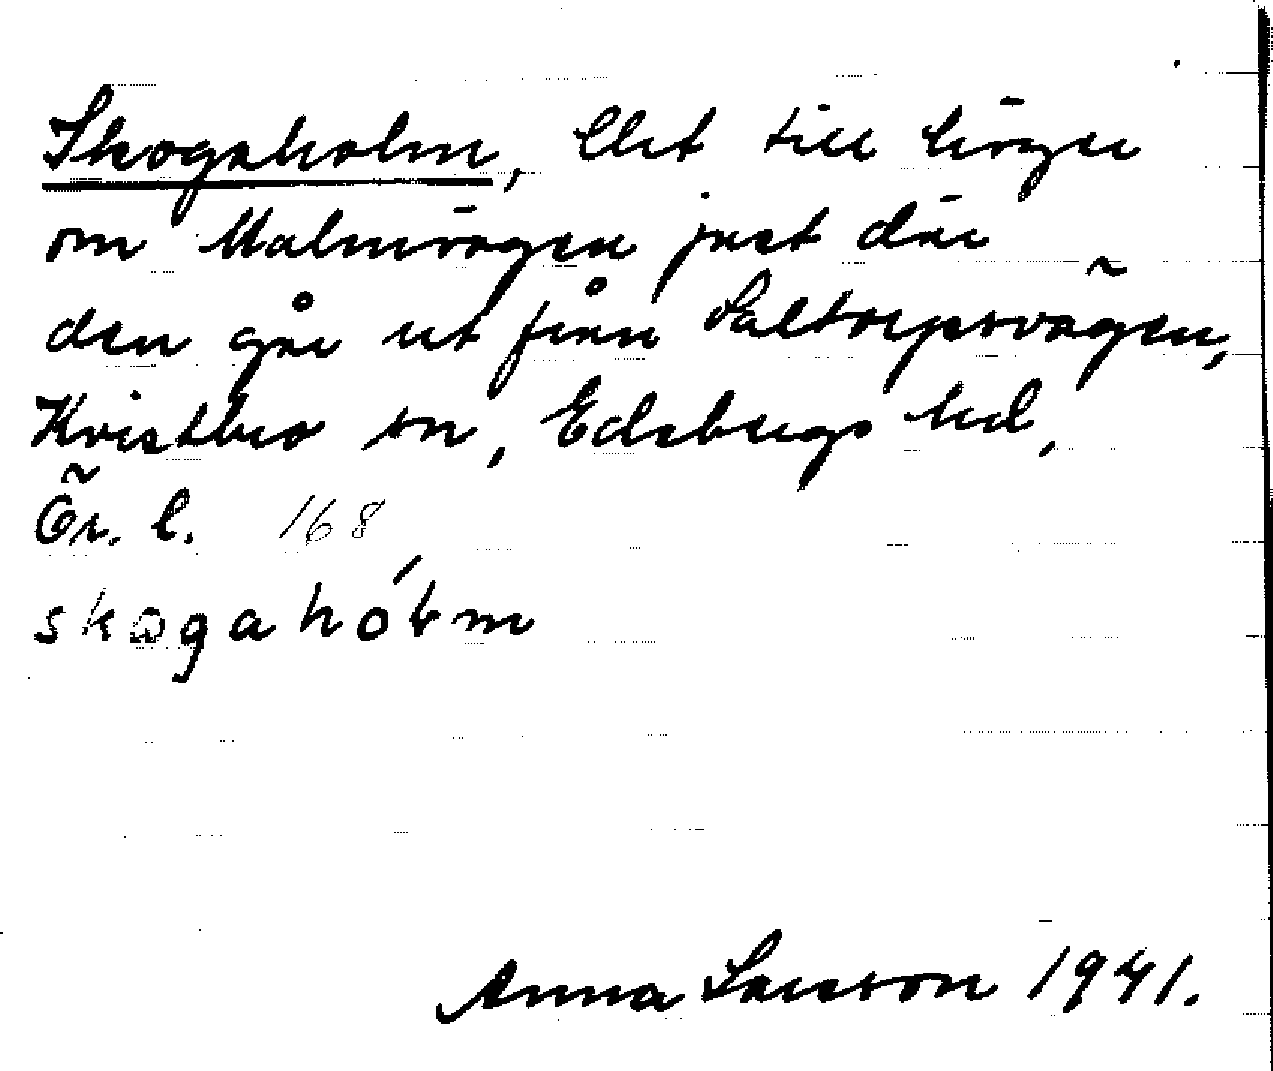 Skogaholm, lht till höger
om Malmvägen just där
den går ut från Saltorpsvägen,
Kvistbro sn, Edsbergs hd,
Ör. l. 168
skogahólm
Anna Larsson 1941.